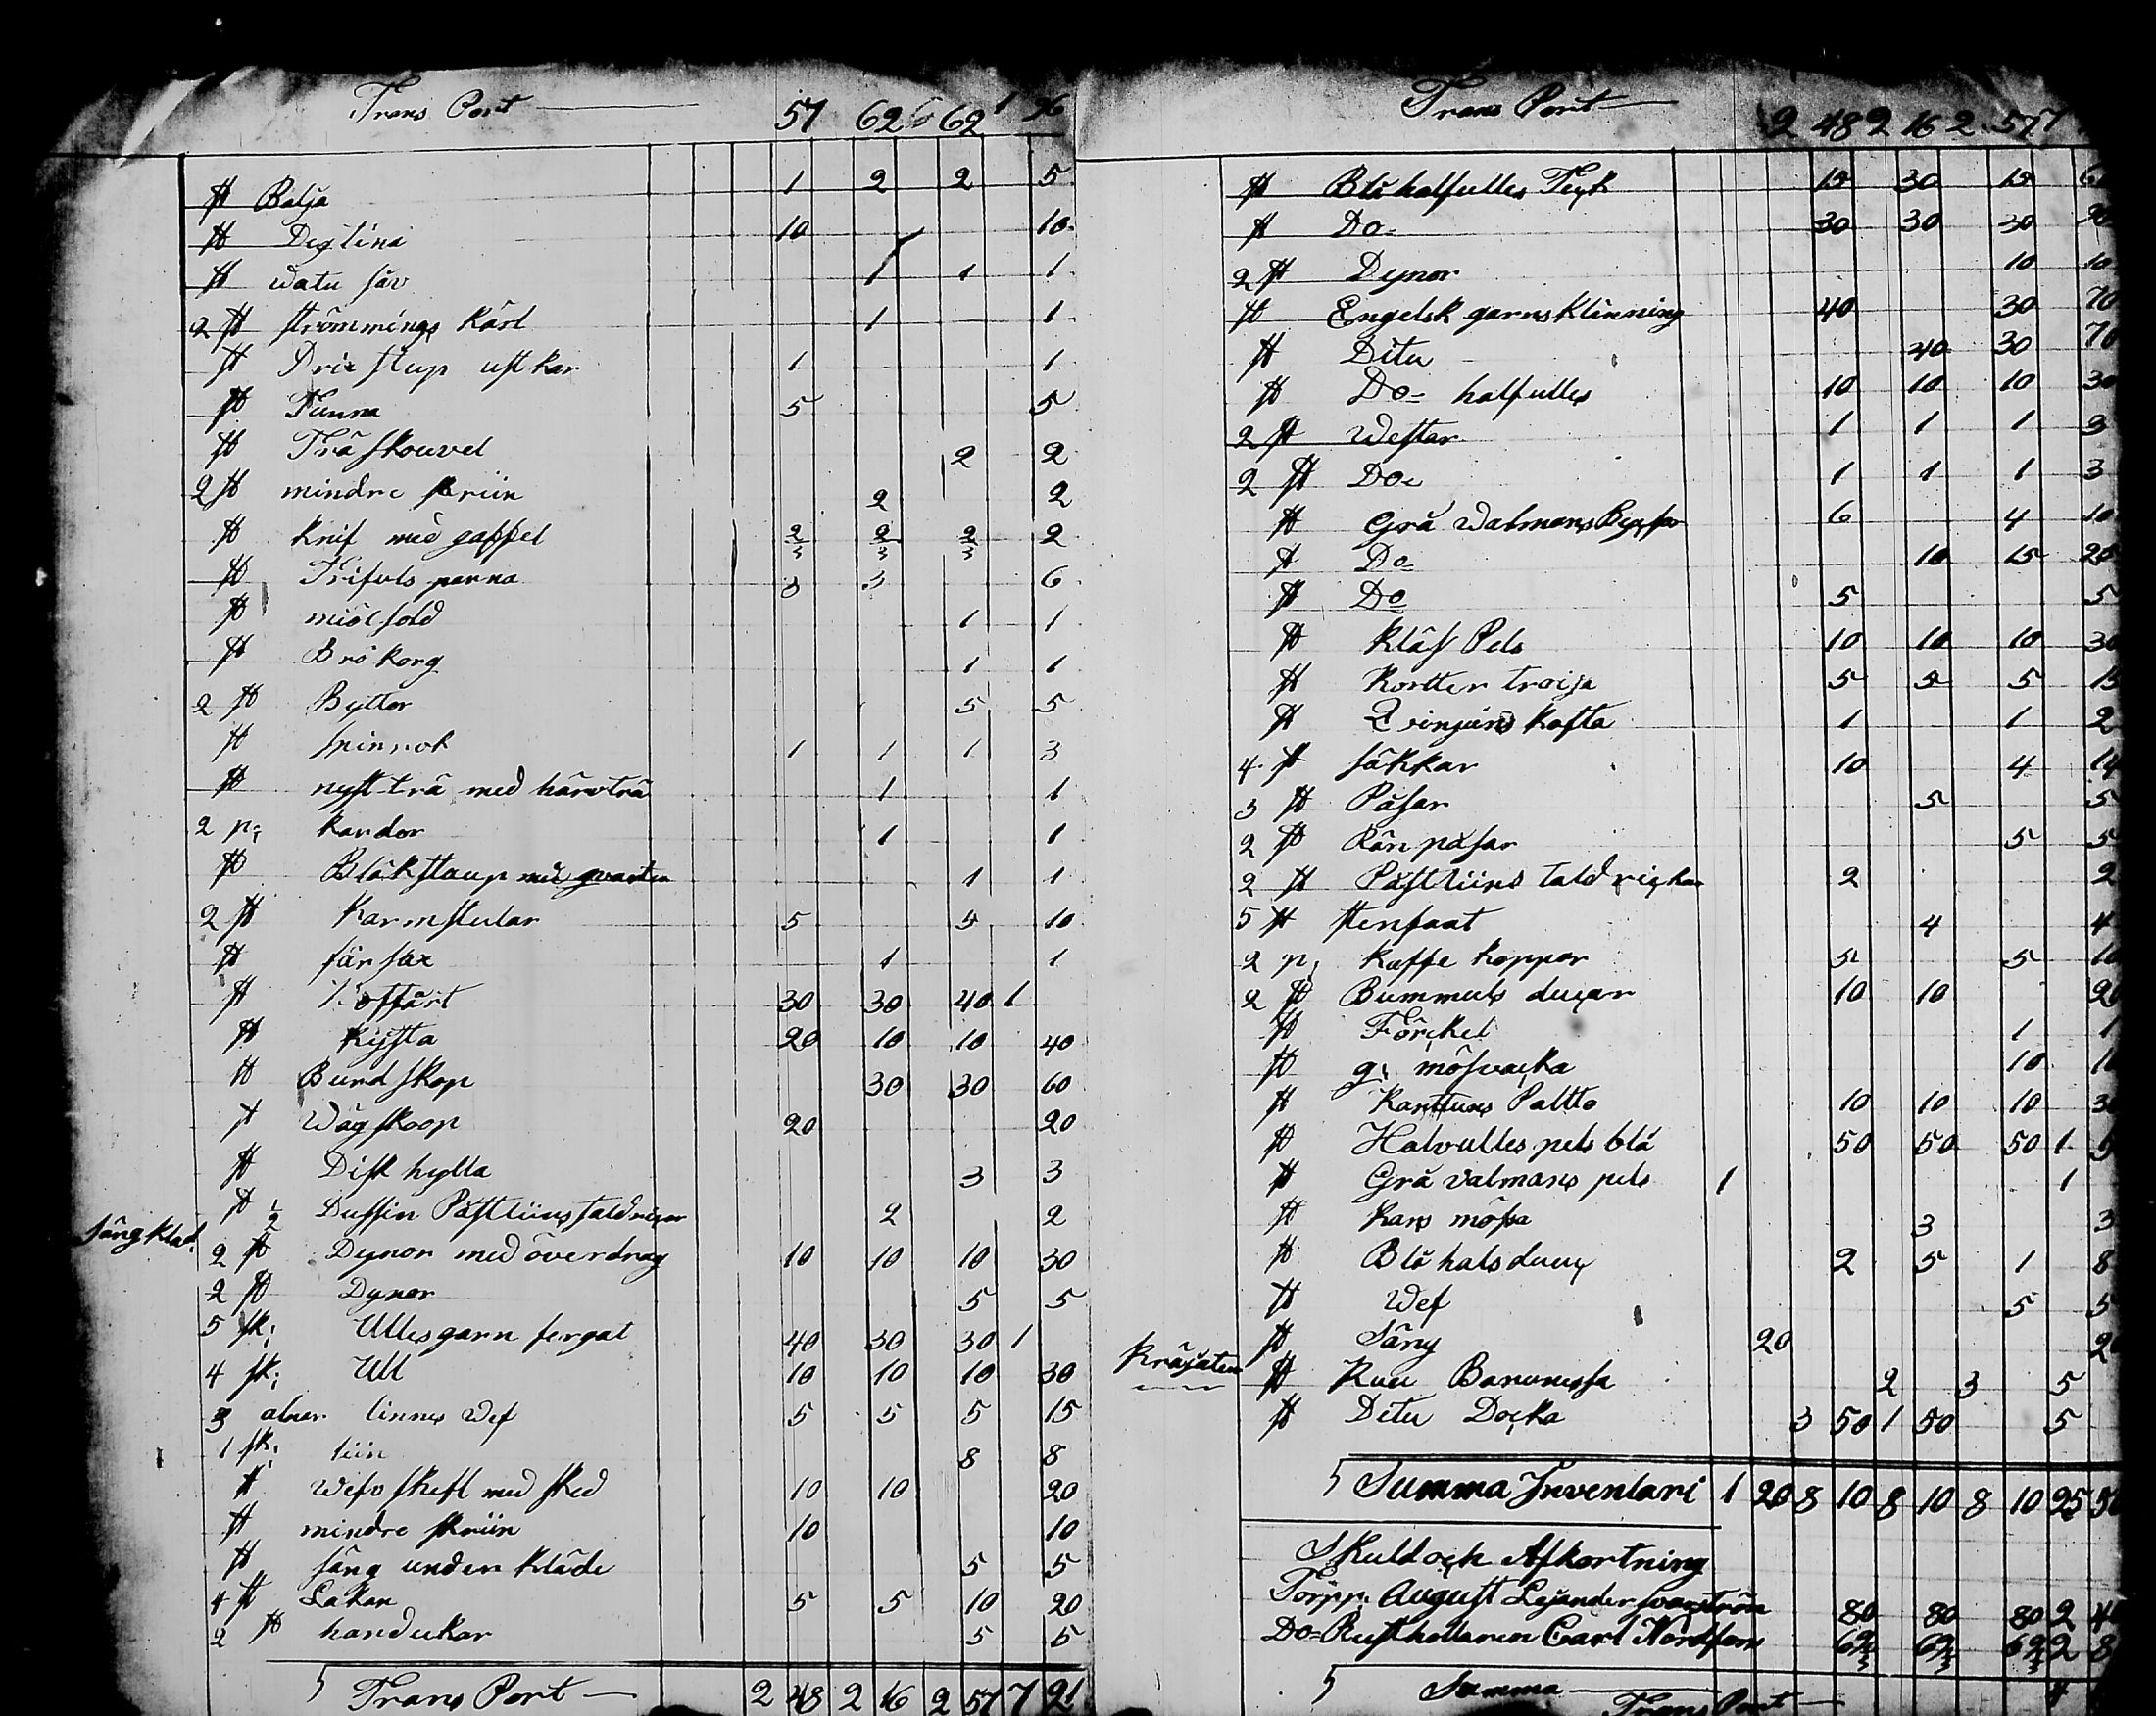 Trans Port 57 62 62 1 96
st Balja 1 2 2 5
st Degtina 10 10
st watu såv 1 1 1
2 st strömmings Kärl 1 1
st stup ust kar 1 1
st Tunna 5 5
st Träskouvel 2 2
2 st mindre skriin 2 2
st Knif med gaffel 2/3 2/3 2/3 2
st Trifuls panna 3 3 6
st miöl sold 1 1
st Brö Korg 1 1
2 st Byttor 5 5
st spinnok 1 1 1 3
st nyst trä med härvträ 1 1
2 p; kardor 1 1
st Bläkstaup med qvarten 1 1
2 st Karmstular 5 5 10
st fårsax 1 1
st Koffärt 30 30 40 1
st Kijsta 20 10 10 40
st Burdskop 30 30 60
st Wägskoop 20 20
st Disk hylla 3 3
st 1/2 Dussin Påstliins taldriçar 2 2
Sängkläd.
2 st Dynor med överdrag 10 10 10 30
2 st Dynor 5 5
5 sk; Ullesgarn fergat 40 30 30 1
4 sk; Ull 10 10 10 30
3 alnar linnes Wef 5 5 5 15
1 sk; liin 8 8
st Wefv skeft med sked 10 10 20
st mindre skriin 10 10
st säng under kläde 5 5
4 st Lakan 5 5 10 20
2 st handukar 5 5
Trans Port 2 48 2 16 2 57 7 21
Trans Port 2 48 2 16 2 57 7
st Blå halfulles Teçk 15 30 15 6
st Do 30 30 30 90
2 st Dynor 10 10
st Engelsk garns Klinning 40 30 70
st Ditu 40 30 70
st Do halfulles 10 10 10 30
2 st Westar 1 1 1 3
2 st Do 1 1 1 3
st Grå Walmans Byxsor 6 4 10
st Do 10 15 25
st Do 5 5
st Kläs Pels 10 10 10 30
st Kortter troija 5 5 5 15
st Kofta 1 1 2
4 st säkkar 10 4 14
3 st Påsar 5 5
2 st Rån påsar 5 5
2 st Påstliins taldriçkar 2 2
5 st stenfaat 4 4
2 p; Kaffe koppor 5 5 10
2 st Bummuls duçar 10 10 20
st Förçkel 1 1
st g; mösvaçka 10 10
st Kanttuns Paltto 10 10 10 30
st Halvulles pels blå 50 50 50 1 5
st Grå valmans pels 1 1
st Kars mössa 3 3
st Blå halsduuç 2 5 1 8
st Wef 5 5
st Säng 20 2
Kräjaten
st Kuu Baronessa 2 3 5
st Ditu Doçka 3 50 1 50 5
Summa Inventari 1 20 8 10 8 10 8 10 25 50
Skuld och Afkortning
Torpp: August Lejander 80 80 80 2 40
Do Rusthollaren Carl Nordfors 69/3 69/3 69/3 2 8
Summa
Trans Port